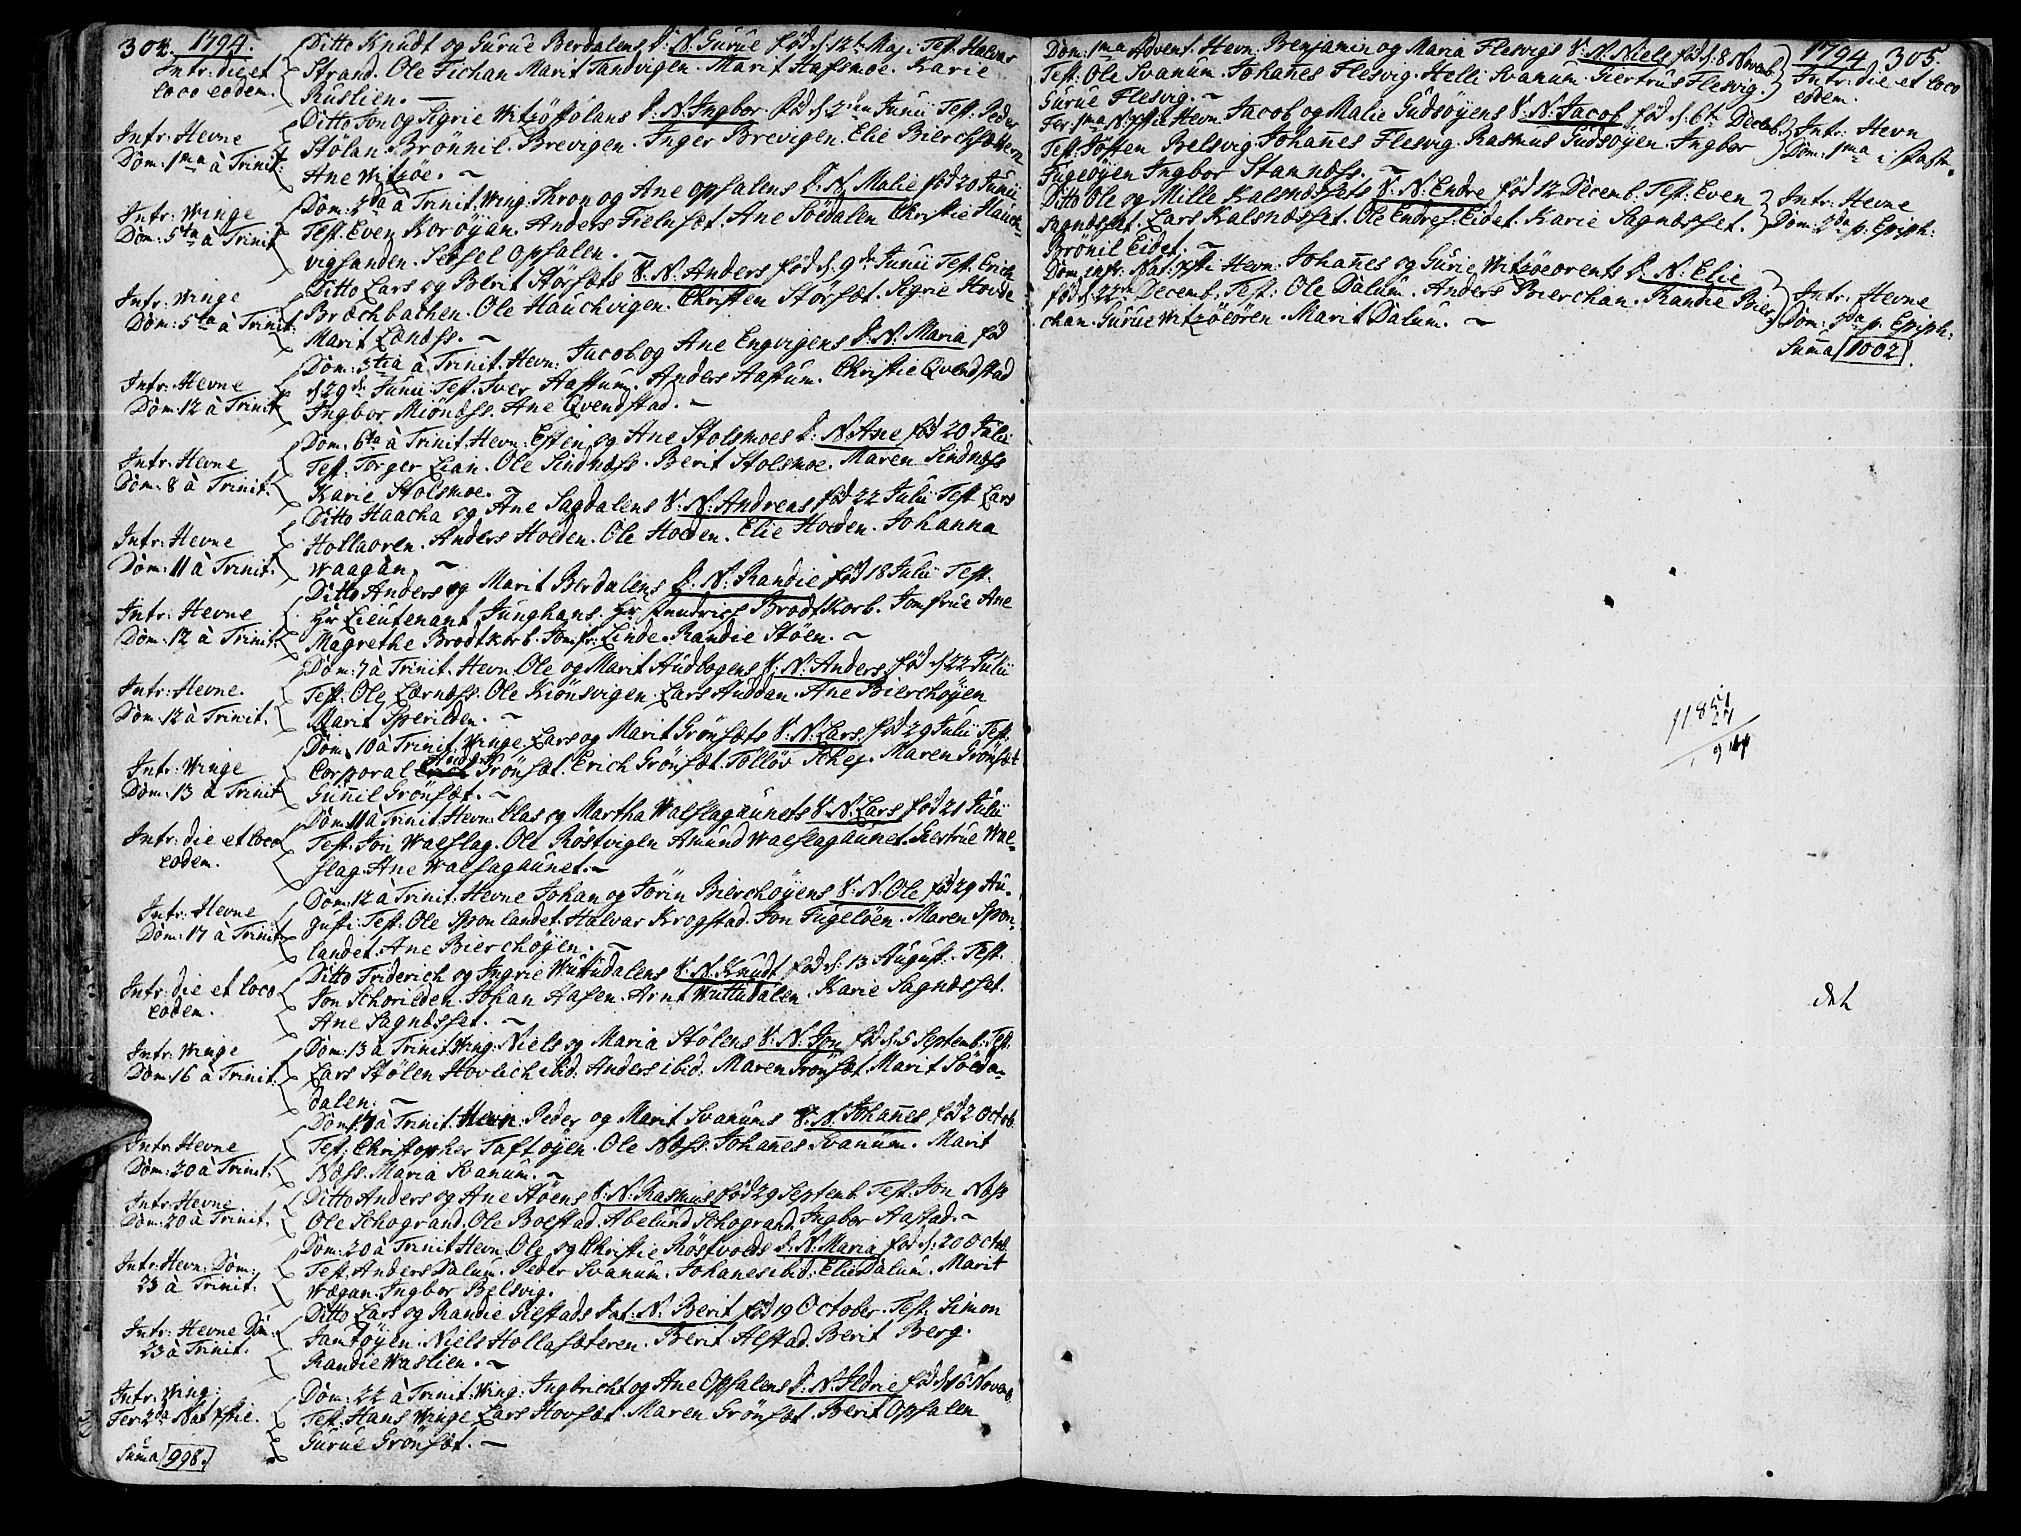 304. 1794.
Intr: die et
loco eodem.
Ditto Knudt og Gurue Berdalens D: N. Gurue fød d: 12te Maj. Test. Halvor
Strand. Ole Fichan Marit Tandvigen. Marit Aasmoe. Karie
Ruslien. —
Intr: Hevne
Dom: 1ma à Trinit:
Ditto Jon og Sigrie D. N. Ingbor. fød d. 2den Junii Test: Peder
Stolan. Brønnil. Brevigen. Inger Brevigen. Elie
Ane Witzøe. —
Intr: Winge
Dom: 5ta à Trinit
Dom: 2da à Trinit. Wing: Thron og Ane Opsalens D. N. Malie fød 20 Junii
Test. Even Korøyan. Anders Fielnset. Ane Soedalen Christie Hauch-
vigsanden. Sessel Opsalen. —
Intr: Winge
Dom: 5ta à Trinit:
Ditto Lars og Berit Størsæts V. N. Anders fød d. 9de Junii Test. Erich
Bræchbachen. Ole Hauchvigen. Christen Størsæt. Sigrie Hovde
Marit Lændss. —
Intr: Hevne
Dom: 12 à Trinit
Dom: 3tia à Trinit. Hevn: Jacob og Ane Engvigens D. N. Maria fød
d 29de Junii Test. Iver Aastum. Anders Aastum. Christie Qvendstad
Ingbor Miøndss. Ane Qvendstad. —
Intr: Hevne
Dom: 8 à Trinit.
Dom. 6ta à Trinit. Hevn: Esten og Ane Stolsmoes D: N. Ane fød 20 Julii
Test. Torger Lian. Ole Sindness. Berit Stolsmoe. Maren Sindness
Karie Stolsmoe. —
Intr: Hevne
Dom: 11 à Trinit.
Ditto Haacha og Ane Sagdalens V: N: Andreas fød 22 Julii Test Lars
Hollaoren. Anders Hoeden. Ole Hoeden. Elie Hoeden. Johanna
Waagan. —
Intr: Hevne
Dom: 12 à Trinit.
Ditto Anders og Marit Berdalens D. N: Randie fød 18 Julii Test.
Hr Lieutenant Junghans. Hr Brodtkorb. Jomfrue Ane
Magrethe Brodtkorb. Jomfr: Linde. Randie Støen. —
Intr: Hevne.
Dom: 12 à Trinit.
Dom: 7 à Trinit. Hevn. Ole og Marit Audbogens V: N. Anders fød d 22 Julii
Test. Ole Lærness. Ole Kiønsvigen. Lars Auddan. Ane Bierchøyen
Marit Sperilden. —
Intr: Winge
Dom: 13 à Trinit
Dom: 10 à Trinit. Winge. Lars og Marit Grønsæts V: N. Lars. fød 29 Julii Test:
Corporal Grønsæt. Erich Grønsæt. Tolløv Schej. Maren Grønsæt
Gunnil Grønsæt. —
Intr: die et loco
eodem.
Dom: 11 à Trinit Hevn: Clas og Martha Waslagaunets V. N. Lars fød 21 Julii
Test. Jon Waslag. Ole Røstvigen Amund Waslagaunet. Giertrue Was-
lag. Ane Waslagaunet. —
Intr: Hevne
Dom: 17 à Trinit
Dom: 12 à Trinit: Hevne Johan og Jørin Bierchøyens V. N. Ole fød 29 Au-
gusti: Test: Ole Sponlandet. Halvar Krogstad. Jon Fugeløen. Maren Spon-
landet. Ane Bierchøyen. —
Intr: die et loco
eodem.
Ditto Friderich og Ingrie Wuttudalens V. N. Knudt fød d. 13 August. Test.
Jon Schorilden. Johan Aasen. Arnt Wuttudalen. Karie Sagnesset.
Ane Sagnesset. —
Intr: Winge
Dom: 16 à Trinit.
Dom: 13 à Trinit Wing: Niels og Maria Stølens V. N. Jon fød d. 5 Septemb: Test.
Lars Stølen Hovlich ibid: Anders ibid: Maren Grønsæt Marit Soeda-
dalen. —
Intr: Hevne
Dom: 20 à Trinit.
Dom: 17 à Trinit. Hevn: Peder og Marit Svanums V. N. Johannes fød 2 Octob.
Test: Christopher Taftøyen. Ole Næss. Johannes Svanum. Marit
Næss. Maria Svanum. —
Intr: Hevne
Dom: 20 à Trinit.
Ditto Anders og Ane Støens V. N. Rasmus fød 29 Septemb. Test: Jon Næss
Ole Schogrand. Ole Boestad. Abelund Schogrand. Ingbor Aastad. —
Intr: Hevn: Dom:
23 à Trinit.
Dom: 20 à Trinit Hevn: Ole og Christie Røstvolds D. N. Maria fød d: 20 Octob.
Test. Anders Dalum. Peder Svanum. Johanes ibid: Elie Dalum. Marit
Wægan. Ingbor Belsvig.
Intr: Hevne Dom.
23 à Trinit.
Ditto Lars og Randie Gilstads Dat: N. Berit fød 19 October. Test. Simon
Jamtøyen. Niels Hollasæteren. Berit Alstad. Berit Berg.
Randie Waslien. —
Intr. Wing:
Fer: 2da Nat Xstie.
Dom: 22 à Trinit. Wing: Ingbricht og Ane Opsalens D. N. Ildrie fød d. 16 Novemb.
Test. Hans Winge Lars Hovsæt. Maren Grønsæt. Berit Opsalen
Gurue Grønsæt. —
Suma 998.
1794 305.
Dom: 1ma Advent. Hevn: Benjamin og Maria Flesvigs V. N. Niels fød d: 8 Novemb.
Test. Ole Svanum. Johannes Flesvig. Helli Svanum. Giertrus Flesvig.
Gurue Flesvig. —
Intr: die et loco
eodem.
Fer: 1ma Nat Xstie Hevn: Jacob og Malie Gudsøyens V: N. Jacob fød d: 6te Decemb.
Test: Joften Belsvig. Johannes Flesvig. Rasmus Gudsøyen. Ingbor
Fugeøyen Ingbor Stamness. —
Intr: Hevn
Dom: 1ma i Fast.
Ditto Ole og Mille Kalsnessets V. N. Endre fød 12 Decemb. Test: Even
Sagnesset. Lars Kalsnesset. Ole Endres: Eidet. Karie Sagnesset.
Brønil Eidet. —
Intr: Hevne
Dom: 2da p. Epiph:
Dom: infr: Nat: Xsti Hevn: Johannes og Gurie Witzøeørents D. N: Elie
fød Decemb: Test: Ole Dalum. Anders Bierchan. Randie Bier-
chan. Gurue Witzøeøren. Marit Dalum. —
Intr: Hevne
Dom: 2da p. Epiph:
Suma 1002.